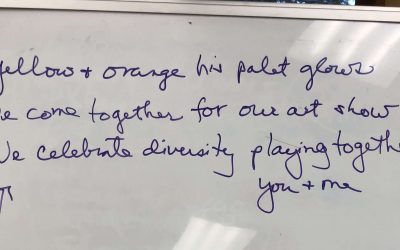 yellow + orange his palet glows
we come together for our art show
We celebrate diversity playing togethe
you + me